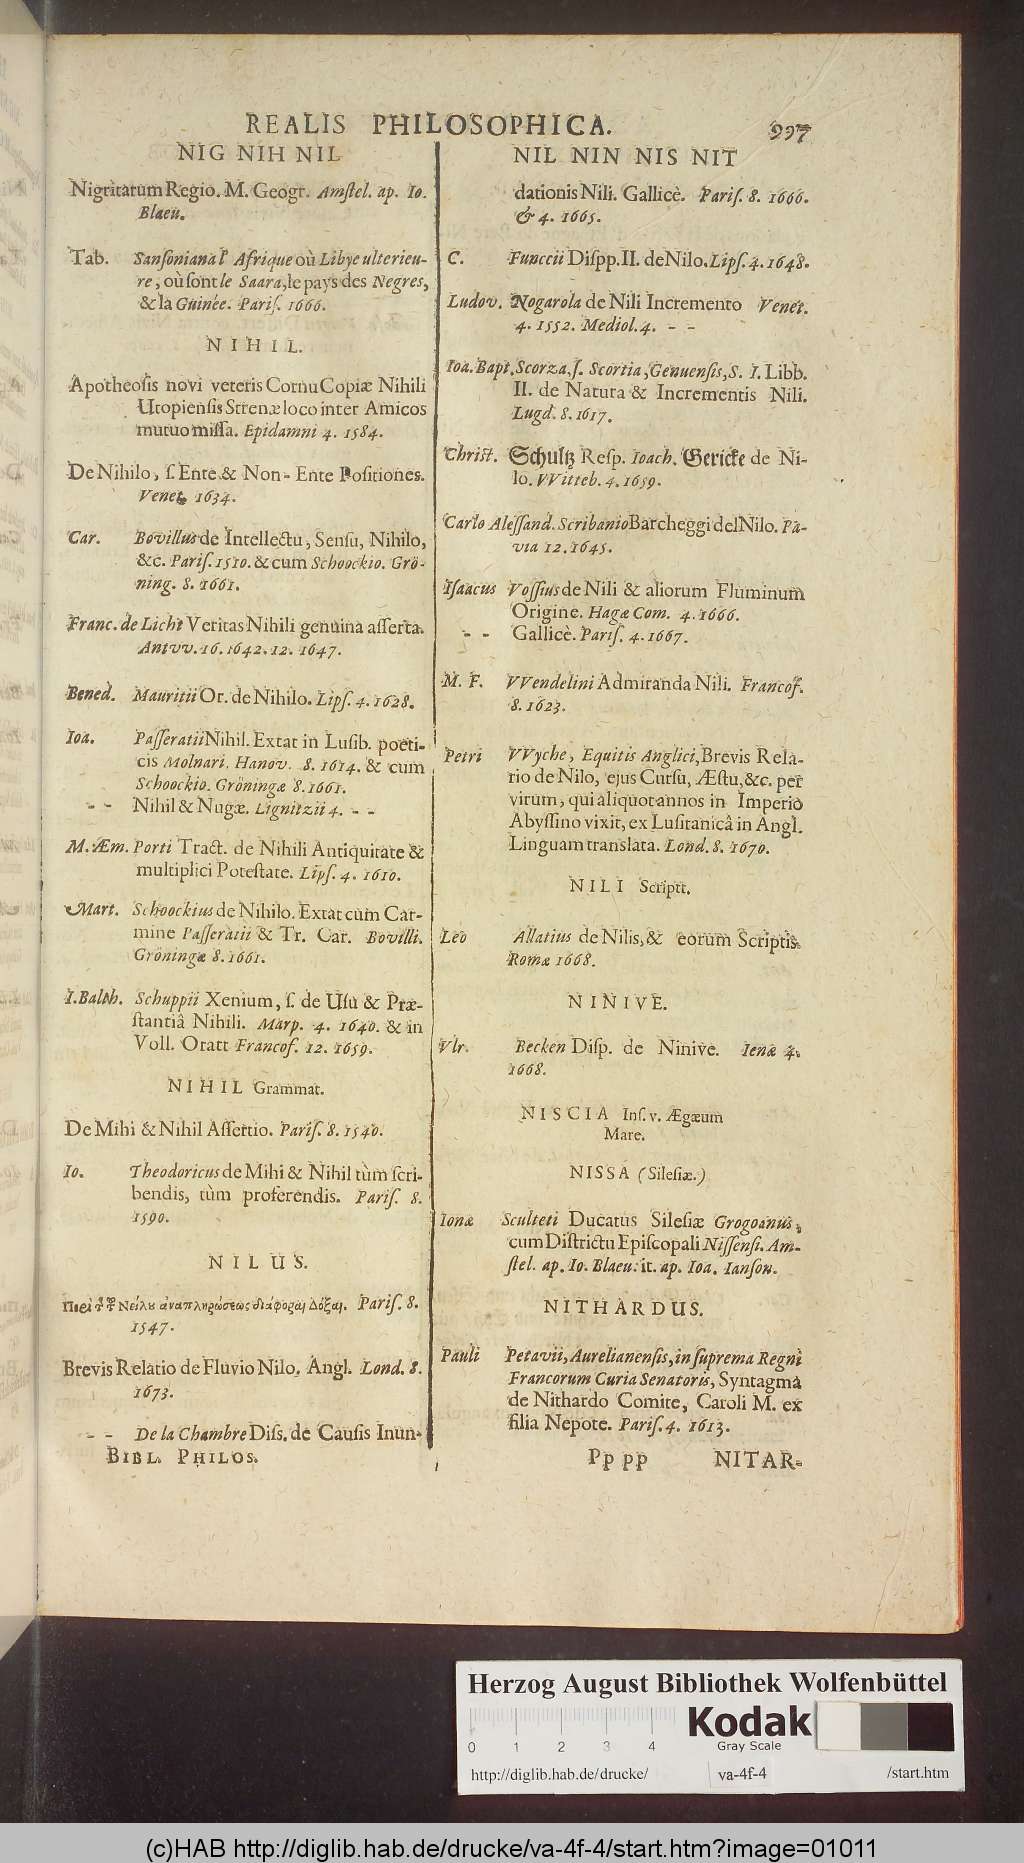 REALIS PHILOSOPHICA. 997
NIG NIH NIL
Nigritarum Regio. M. Geogr. Amstel. ap. Io.
Blaeu.
Tab. Sansoniana l' Afrique où Libye ulterieu-
re, où sont le Saara, le pays des Negres,
& la Guinée. Paris. 1666.
NIHIL.
Apotheosis novi veteris Cornu Copiæ Nihili
Utopiensis Strenæ loco inter Amicos
mutuo missa. Epidamni 4. 1584.
De Nihilo, s. Ente & Non-Ente Positiones.
Venet. 1634.
Car. Bovillus de Intellectu, Sensu, Nihilo,
&c. Paris. 1510. & cum Schoockio. Grö-
ning. 8. 1661.
Franc. de Licht Veritas Nihili genuina asserta.
Antvv. 16. 1642. 12. 1647.
Bened. Mauritii Or. de Nihilo. Lips. 4. 1628.
Ioa. Passeratii Nihil. Extat in Lusib. poëti-
cis Molnari. Hanov. 8. 1614. & cum
Schoockio. Gröningæ 8. 1661.
- - Nihil & Nugæ. Lignitzii 4. - -
M. Æm. Porti Tract. de Nihili Antiquitate &
multiplici Potestate. Lips. 4. 1610.
Mart. Schoockius de Nihilo. Extat cum Car-
mine Passeratii & Tr. Car. Bovilli.
Gröningæ 8. 1661.
I. Balth. Schuppii Xenium, s. de Usu & Præ-
stantiâ Nihili. Marp. 4. 1640. & in
Voll. Oratt Francof. 12. 1659.
NIHIL Grammat.
De Mihi & Nihil Assertio. Paris. 8. 1540.
Io. Theodoricus de Mihi & Nihil tùm scri-
bendis, tùm proferendis. Paris. 8.
1590.
NILUS.
Νείλου ἀναπληρώσεως διάφοραι Δόξαι. Paris. 8.
1547.
Brevis Relatio de Fluvio Nilo, Angl. Lond. 8.
1673.
- - De la Chambre Diss. de Causis Inun-
BIBL. PHILOS.
NIL NIN NIS NIT
dationis Nili. Gallicè. Paris. 8. 1666.
& 4. 1665.
C. Funccii Dispp. II. de Nilo. Lips. 4. 1648.
Ludov. Nogarola de Nili Incremento Venet.
4. 1552. Mediol. 4. - -
Ioa. Bapt. Scorza, s. Scortia, Genuensis, S. I. Libb.
II. de Natura & Incrementis Nili.
Lugd. 8. 1617.
Christ. Schultz Resp. Ioach. Gericke de Ni-
lo. VVitteb. 4. 1659.
Carlo Alessand. Scribanio Barcheggi del Nilo. Pa-
via 12. 1645.
Isaacus Vossius de Nili & aliorum Fluminum
Origine. Hagæ Com. 4. 1666.
- - Gallicè. Paris. 4. 1667.
M. F. VVendelini Admiranda Nili. Francof.
8. 1623.
Petri VVyche, Equitis Anglici, Brevis Rela-
tio de Nilo, ejus Cursu, Æstu, &c. per
virum, qui aliquot annos in Imperio
Abyssino vixit, ex Lusitanicâ in Angl.
Linguam translata. Lond. 8. 1670.
NILI Scriptt.
Leo Allatius de Nilis, & eorum Scriptis.
Romæ 1668.
NINIVE.
Vlr. Becken Disp. de Ninive. Ienæ 4.
1668.
NISCIA Ins. v. Ægæum
Mare.
NISSA (Silesiæ.)
Ionæ Sculteti Ducatus Silesiæ Grogoanus,
cum Districtu Episcopali Nissensi. Am-
stel. ap. Io. Blaeu: it. ap. Ioa. Ianson.
NITHARDUS.
Pauli Petavii, Aurelianensis, in suprema Regni
Francorum Curia Senatoris, Syntagma
de Nithardo Comite, Caroli M. ex
filia Nepote. Paris. 4. 1613.
Pp pp NITAR-
Herzog August Bibliothek Wolfenbüttel
Kodak
Gray Scale
0 1 2 3 4
http://diglib.hab.de/drucke/ va-4f-4 /start.htm
(c)HAB http://diglib.hab.de/drucke/va-4f-4/start.htm?image=01011